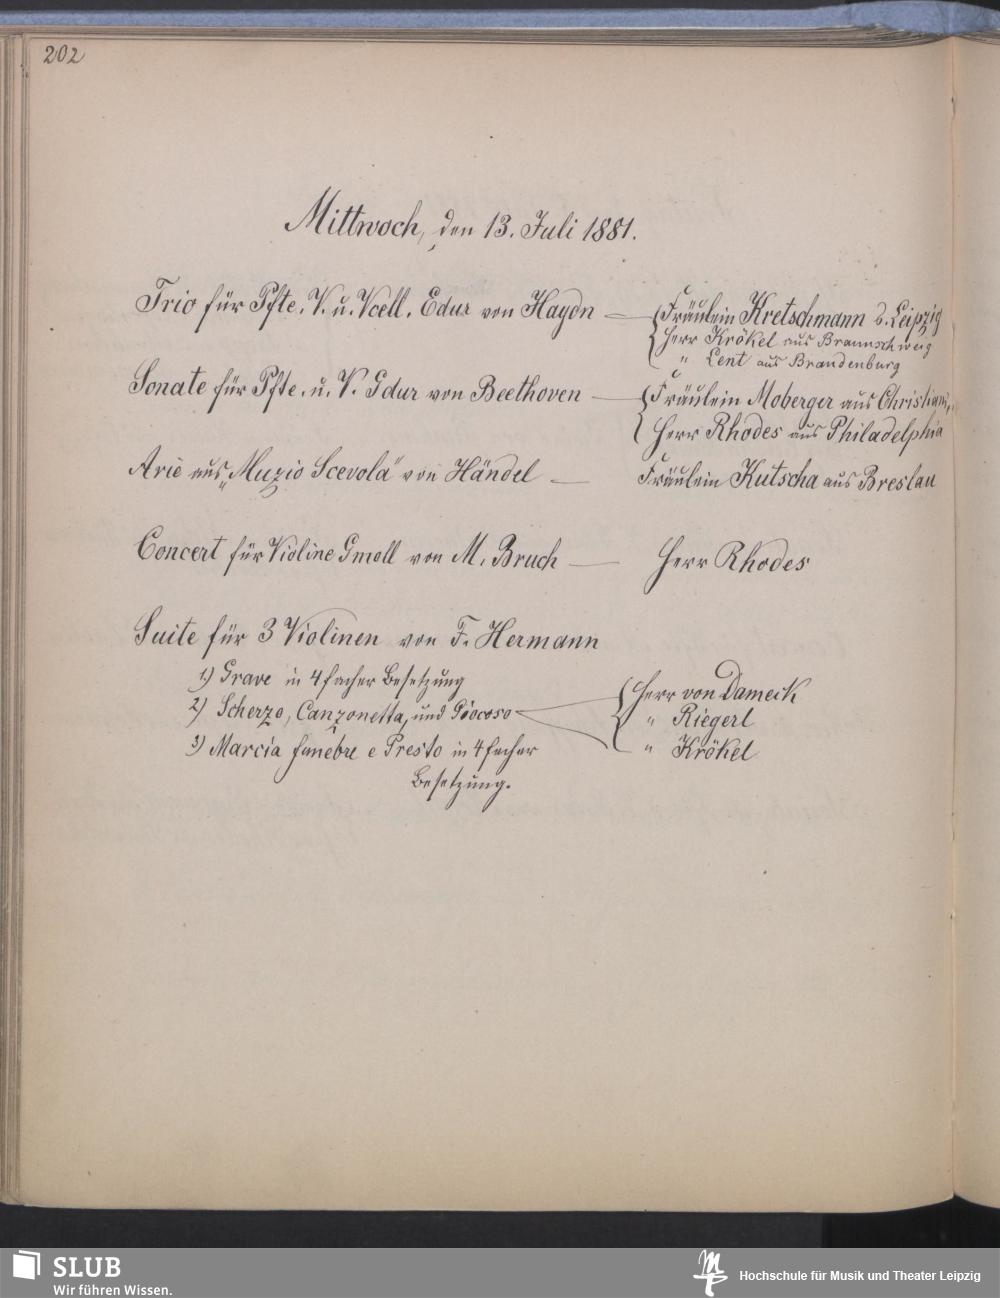 202
Mittwoch, den 13. Juli 1881.
Trio für Pfte. V. u. Vcell. Edur von Haydn — Fräulein Kretschmann a. Leipzig
Herr Krökel aus Braunschweig
" Lent aus Brandenburg
Sonate für Pfte. u. V. Gdur von Beethoven — Fräulein Moberger aus
Herr Rhodes aus Philadelphia
Arie aus „Muzio Scevola" von Händel — Fräulein Kutscha aus Breslau
Concert für Violine Gmoll von M. Bruch — Herr Rhodes
Suite für 3 Violinen von F. Hermann
1) Grave in 4facher Besetzung
2) Scherzo, Canzonetta, und Giocoso
3) Marcia funebre e Presto in 4facher
Besetzung.
Herr von Dameck
" Riegerl
" Krökel
SLUB
Wir führen Wissen.
Hochschule für Musik und Theater Leipzig